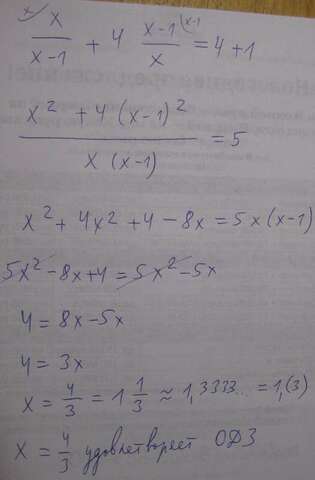 x/(x-1) + 4 (x-1)/x = 4+1
(x² + 4(x-1)²)/(x(x-1)) = 5
x² + 4x² + 4 - 8x = 5x(x-1)
5x² - 8x + 4 = 5x² - 5x
4 = 8x - 5x
4 = 3x
x = 4/3 = 1 1/3 ≈ 1,3333... = 1,(3)
x = 4/3 удовлетворяет ОДЗ